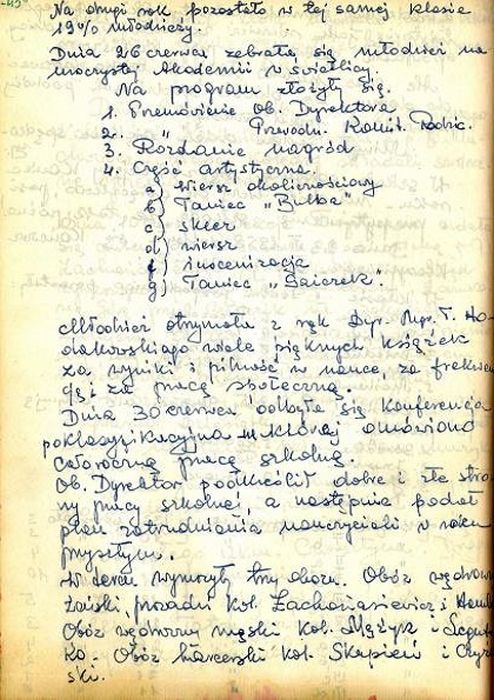 Na drugi rok pozostało w tej samej klasie
19% młodzieży.
Dnia 26 czerwca zebrała się młodzież na
uroczystej Akademii w świetlicy.
Na program złożyły się.
1. Przemówienie Ob. Dyrektora
2. " Przewodn. Komit. Rodzic.
3. Rozdanie nagród
4. Część artystyczna.
a) wiersz okolicznościowy
b) Taniec „Bulba"
c) skecz
d) wiersz
f) inscenizacja
g) Taniec
Młodzież otrzymała z rąk Dyr. Mgr. T. Ho-
dakowskiego wiele pięknych książek
za wyniki i pilność w nauce, za frekwen
cję i za pracę społeczną.
Dnia 30 czerwca odbyła się Konferencja
poklasyfikacyjna na której omówiono
całoroczną pracę szkolną.
Ob. Dyrektor podkreślił dobre i złe stro
ny pracy szkolnej, a następnie podał
plan zatrudniania nauczycieli w roku
przyszłym.
W teren wyruszyły trzy obozy. Obóz wędrown
żeński, prowadzi Kol. Zachariasiewicz i
Obóz wędrowny męski Kol. Mężyk i
ko. Obóz harcerski Kol. Skępień i
ski.